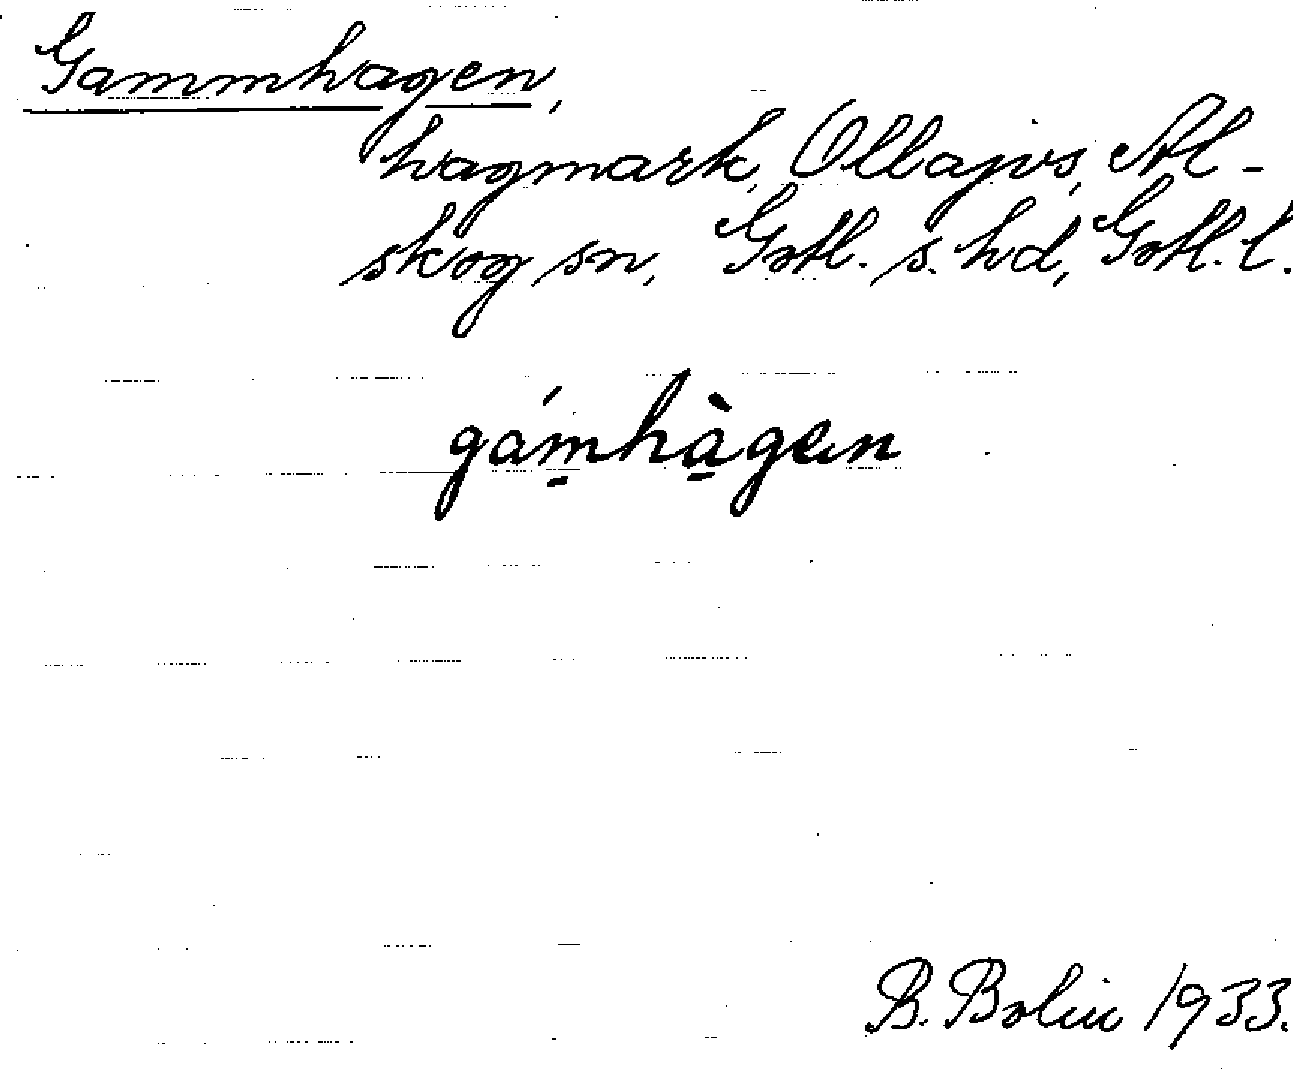 Gammhagen,
hagmark, Ollajvs, Al-
skog sn, Gotl. s. hd, Gotl. l.
gám̱hà̱gen
B. Bolin 1933.